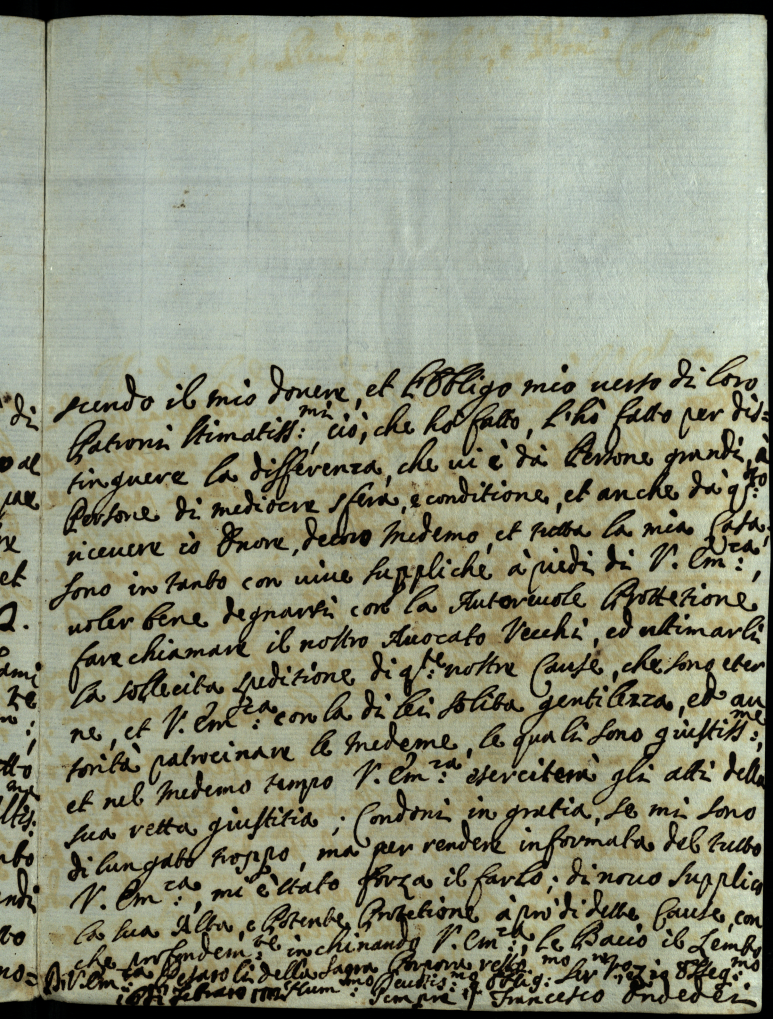 scendo il mio dovere, et l'Obligo mio verso di loro
Patroni stimatiss:mi, ciò, che hò fatto, l'hò fatto per dis=
tinguere la differenza, che vi è dà Persone grandi, à
Persone di mediocre sfera, e conditione, et anche dà q:sto
ricevere io Onore, decoro medemo, et tutta la mia Casa.
sono in tanto con vive suppliche à piedi di V. Em:za,
voler bene degnarsi con la Autorevole Prottetione
fare chiamare il nostro Avocato Vecchi, ed ultimarli
la sollecita speditione di q:ste nostre Cause, che sono eter
ne, et V. Em:za con la di lei solita gentilezza, ed au
torità patrocinare le medeme, le quali sono giustiss:me,
et nel medemo tempo V. Em:za eserciterà gli atti della
sua retta giustitia; Condoni in gratia, se mi sono
di lungato troppo, ma per rendere informata del tutto
V. Em:za, mi è stato forza il farlo; di novo supplico
la sua Alta, e Potente Protetione à prò di dette Cause, con
che profondem:te inchinando V. Em:za, le Bacio il Lembo
della Sagra Porpora
Di V. Em:za Pesaro li
Febraro
sempre
Francesco Ondedei
di
al
et
ami
ndi